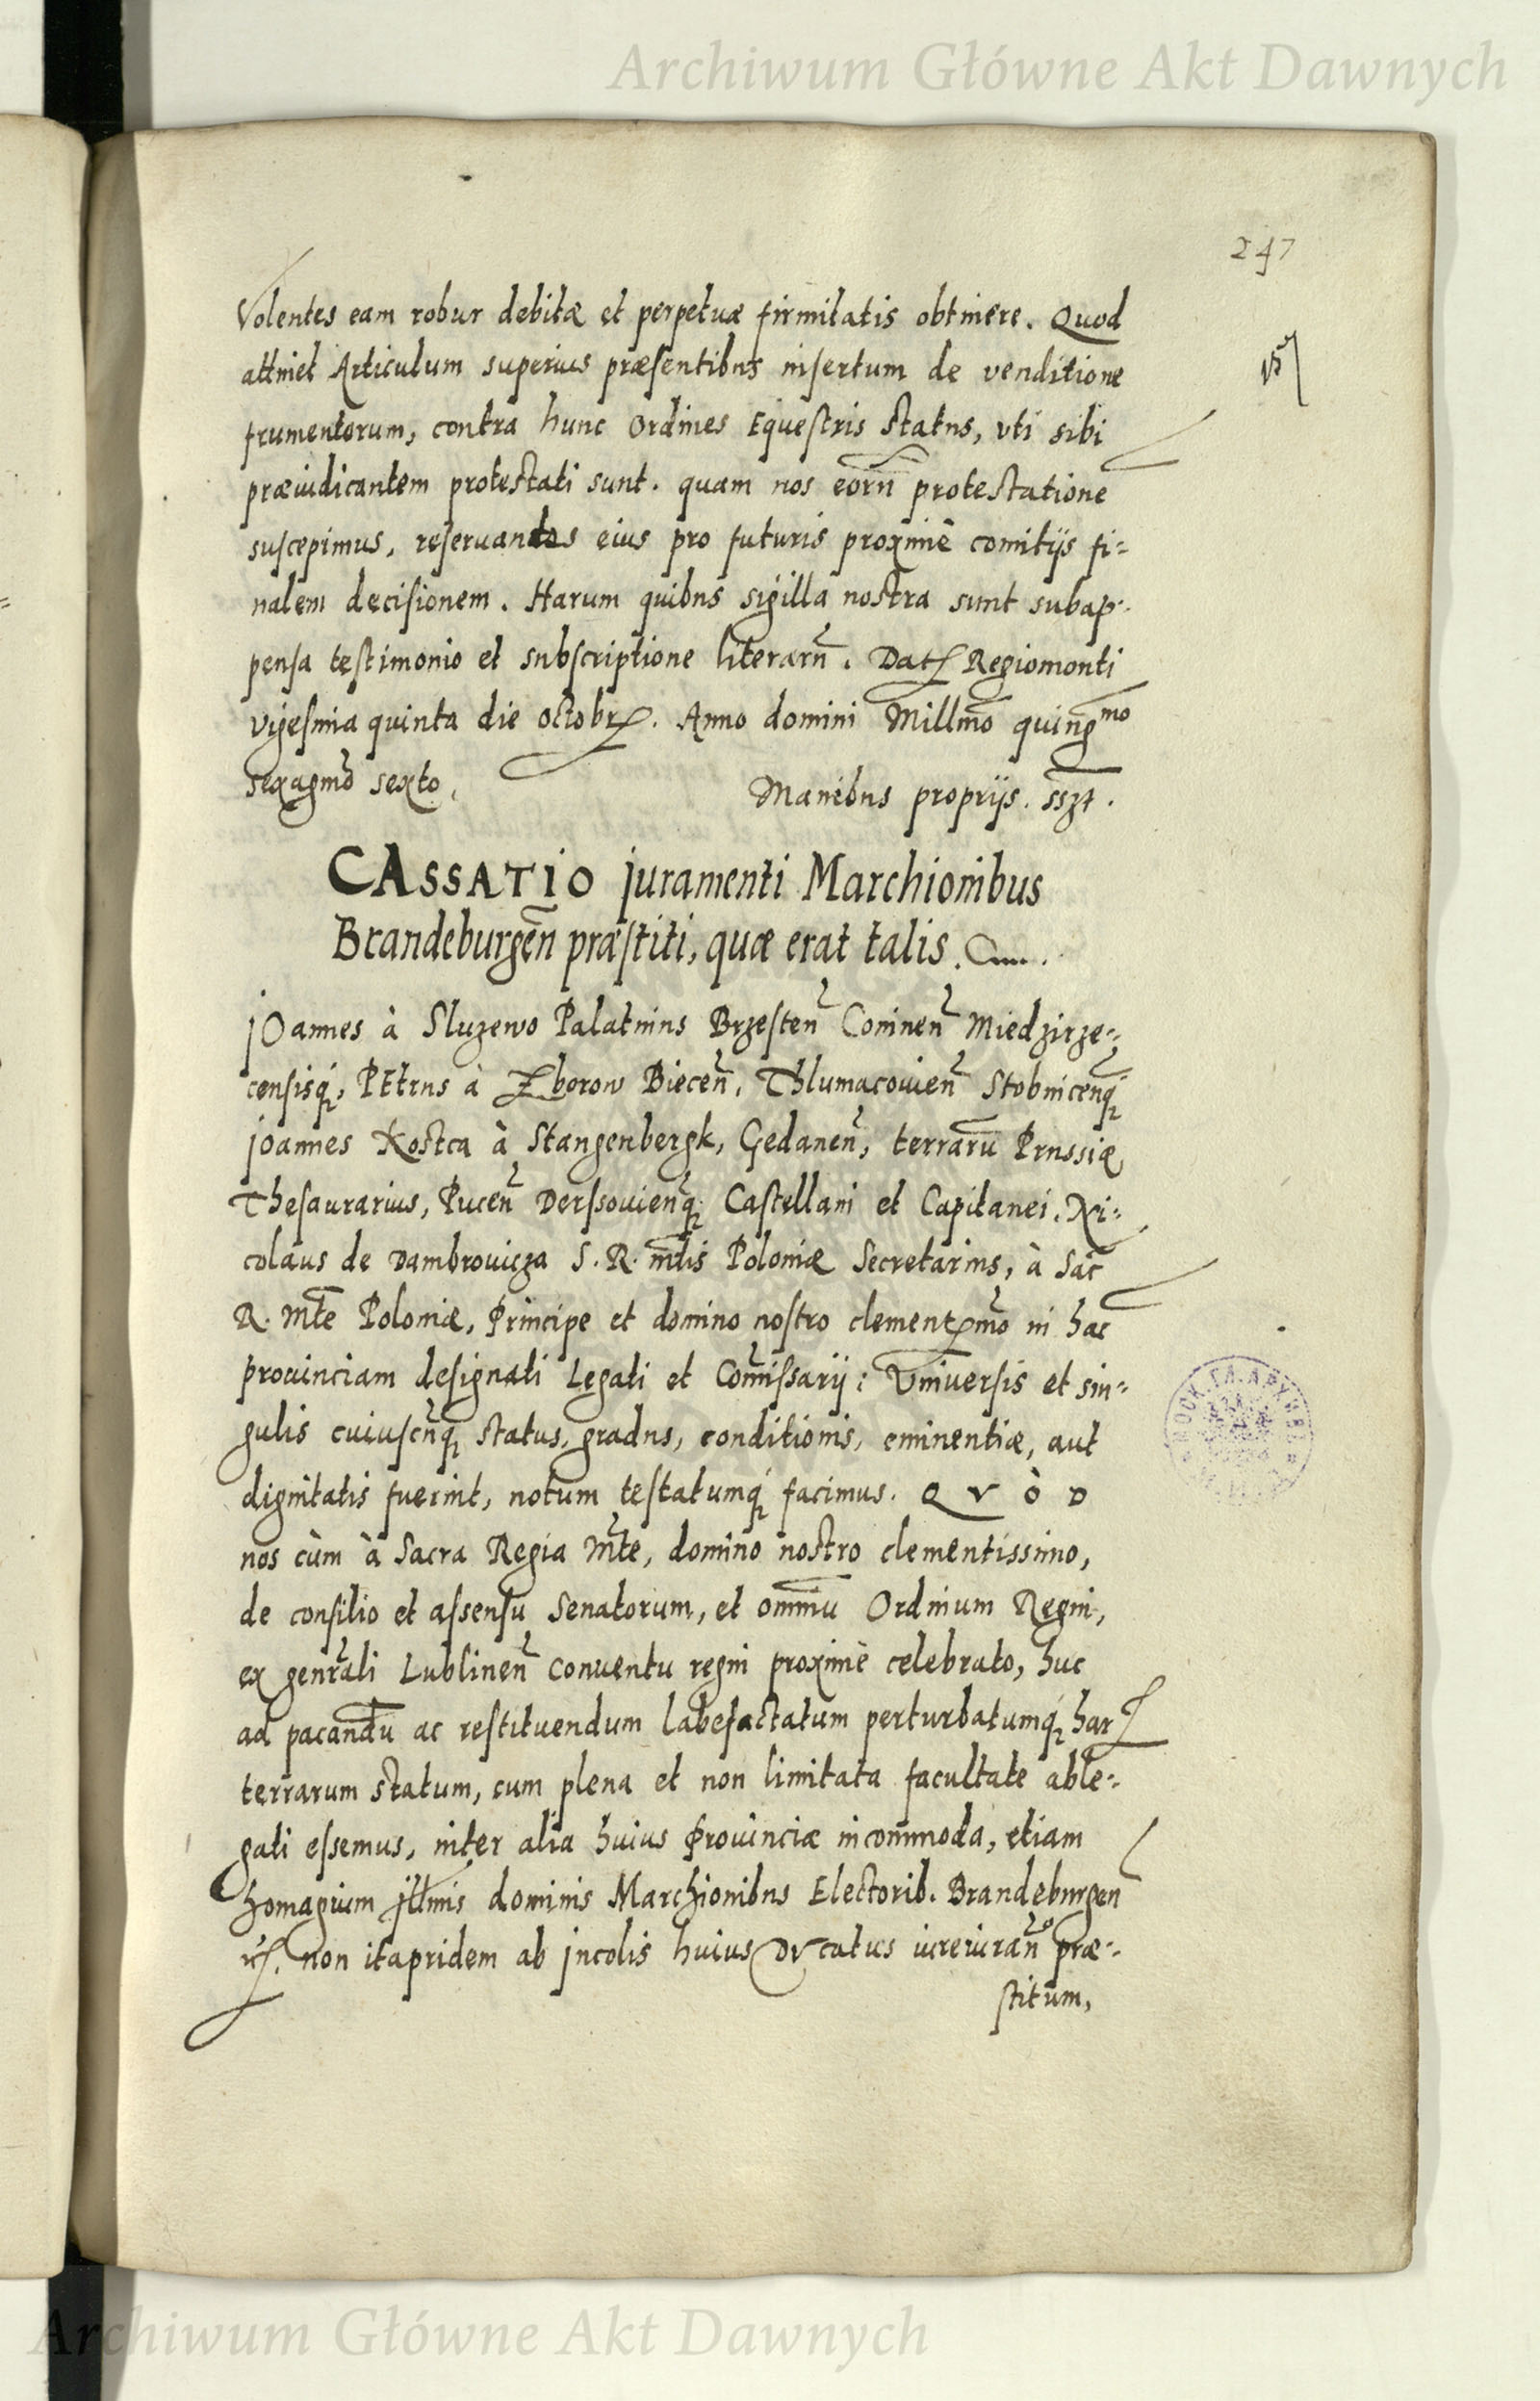 Archiwum Główne Akt Dawnych
247
Volentes eam robur debitæ et perpetuæ firmitatis obtinere. Quod
attinet Articulum superius præsentibus insertum de venditione
frumentorum, contra hunc Ordines Equestris status, vti sibi
præiudicantem protestati sunt. quam nos eorū protestatione
suscepimus, reseruantes eius pro futuris proximè comitijs fi=
nalem decisionem. Harum quibus sigilla nostra sunt subap-
pensa testimonio et subscriptione literarū. Dat Regiomonti
vigesima quinta die octobr. Anno domini Millmō quingmo
sexagmō sexto.
Manibus proprijs. sszt.
CASSATIO juramenti Marchionibus
Brandeburgeñ præstiti, quæ erat talis.
jOannes à Sluzewo Palatinus Brzesteñ Conineñ Miedzirze=
censisq́;, PEtrus à Zborow Bieceñ, Thlumacouieñ Stobnicenq́;
jOannes Kostca à Stangenbergk, Gedaneñ, terrarū Prussiæ
Thesaurarius, Puceñ Derssouienq́; Castellani et Capitanei. Ni=
colaus de Dambrouicza S. R. mtis Poloniæ Secretarius, à Sac
R. Mte Poloniæ, Principe et domino nostro clementmō in hac
prouinciam designati Legati et Comissarij: Vniuersis et sin=
gulis cuiuscūq́; status, gradus, conditionis, eminentiæ, aut
dignitatis fuerint, notum testatumq́; facimus. QVÒD
nos cùm à Sacra Regia Mte, domino nostro clementissimo,
de consilio et assensu Senatorum, et omniū Ordinum Regni,
ex genrali Lublineñ Conuentu regni proximè celebrato, huc
ad pacandū ac restituendum labefactatum perturbatumq́; har
terrarum statum, cum plena et non limitata facultate able=
gati essemus, inter alia huius Prouinciæ incommoda, etiam
homagium jllmis dominis Marchionibus Electorib. Brandeburgen
non itapridem ab jncolis huius Ducatus iureiurañº præ=
stitum,
Archiwum Główne Akt Dawnych